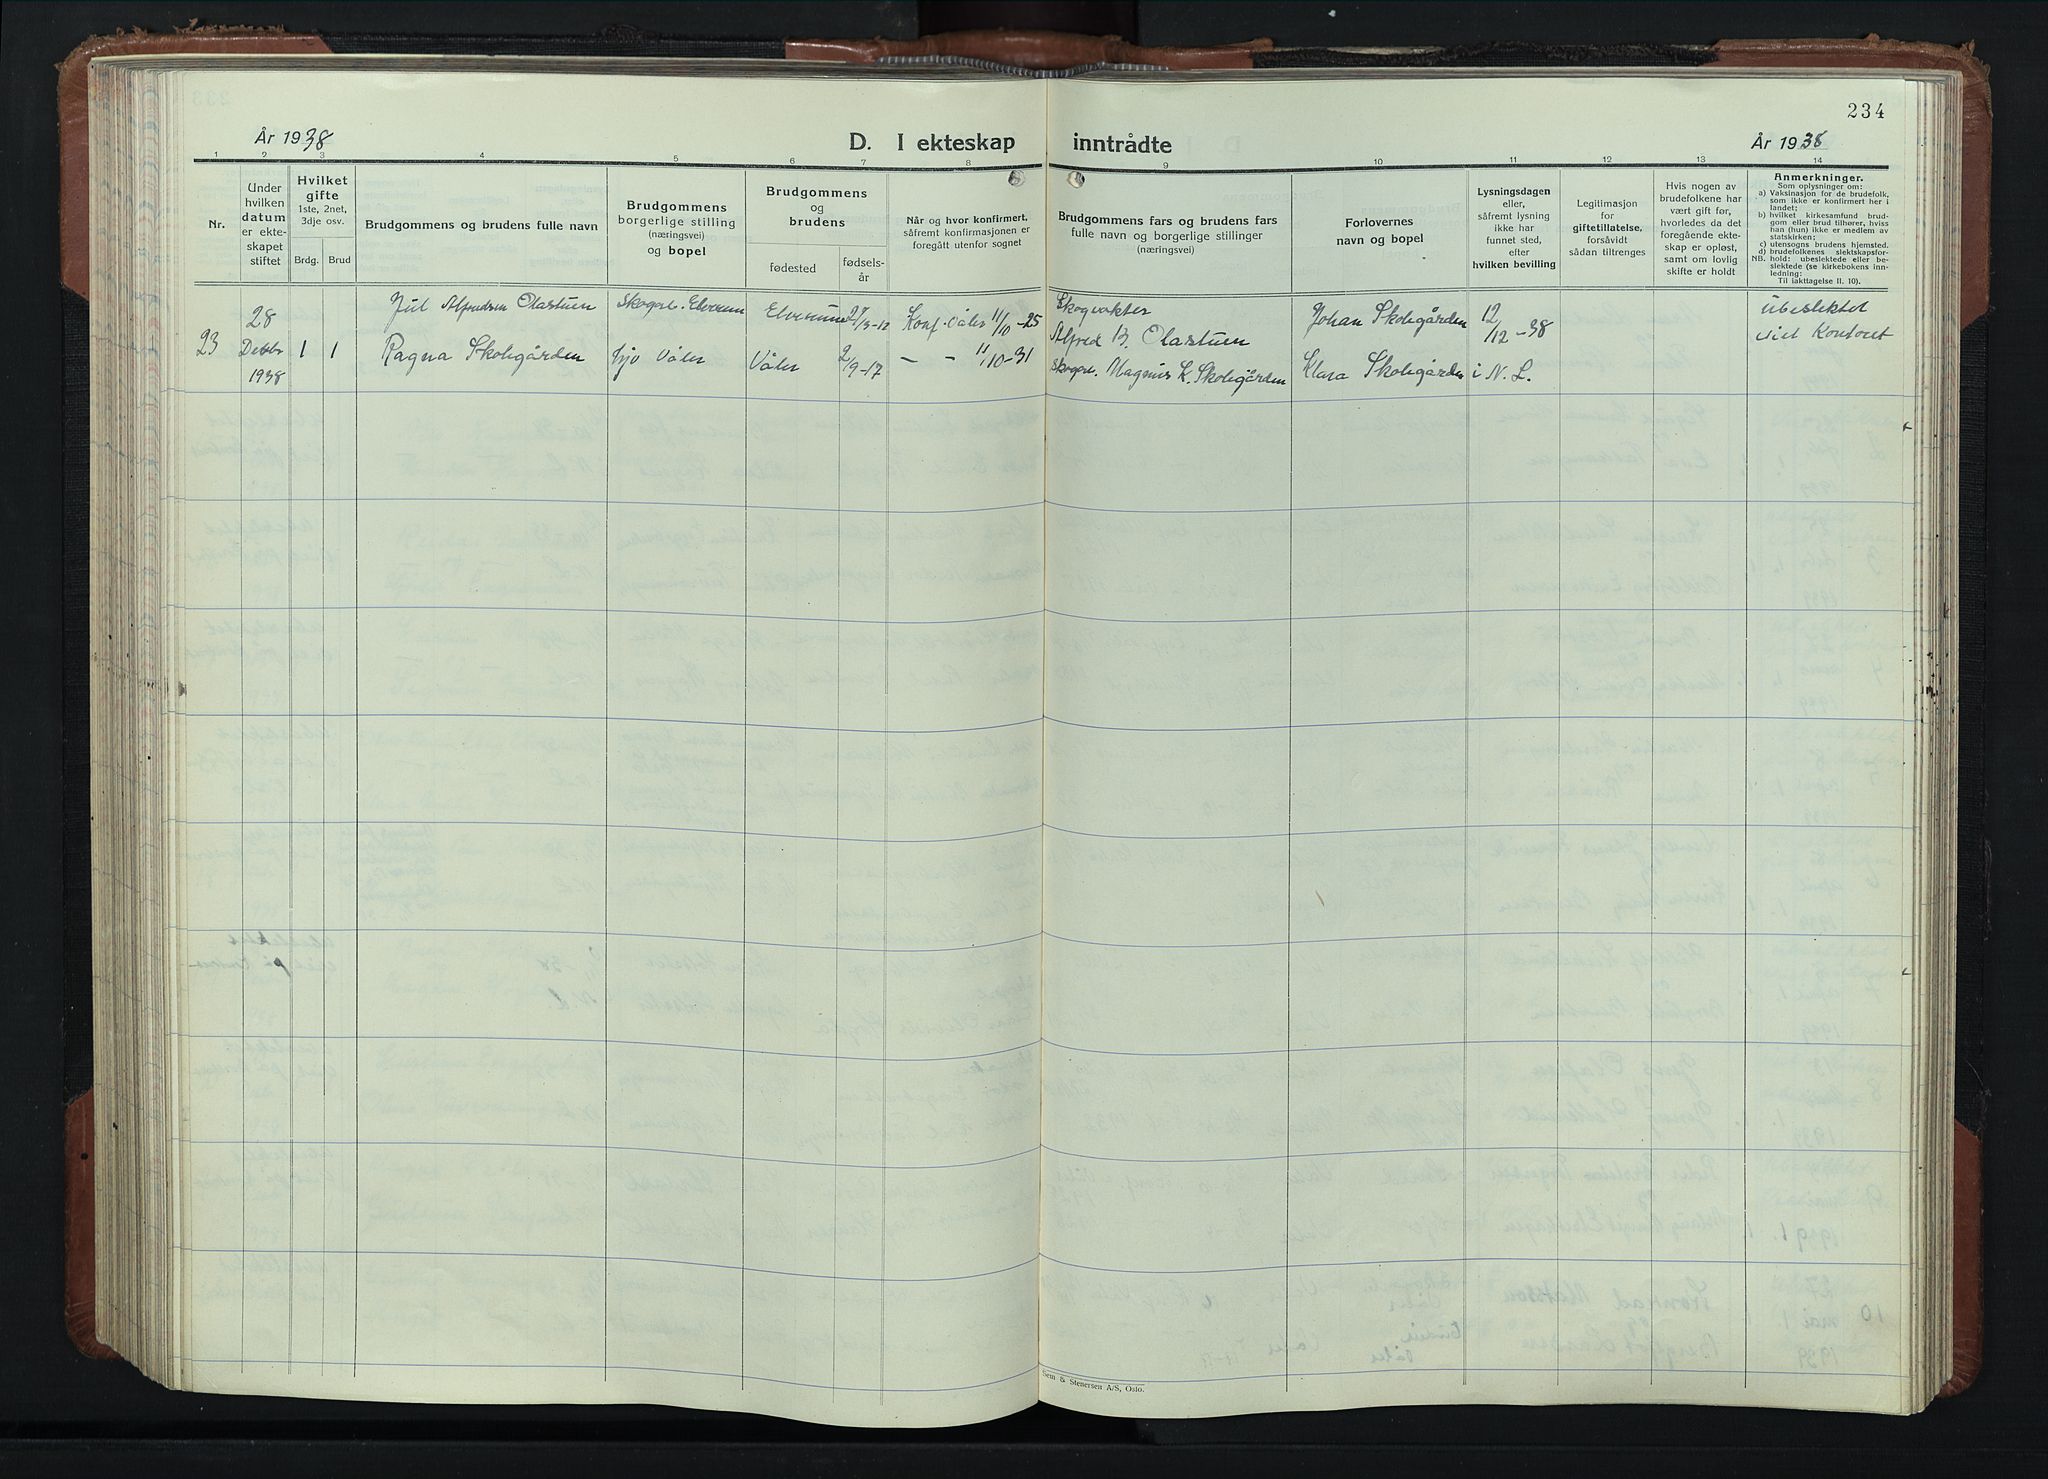 234
År 1938
D. I ekteskap inntrådte
År 1938
1 2 3 4 5 6 7 8 9 10 11 12 13 14
Nr.
Under
hvilken
datum
er ekte-
skapet
stiftet
Hvilket
gifte
1ste, 2net,
3dje osv.
Brdg. Brud
Brudgommens og brudens fulle navn
Brudgommens
borgerlige stilling
(næringsvei)
og bopel
Brudgommens
og
brudens
fødested
fødsels-
år
Når og hvor konfirmert,
såfremt konfirmasjonen er
foregått utenfor sognet
Brudgommens fars og brudens fars
fulle navn og borgerlige stillinger
(næringsvei)
Forlovernes
navn og bopel
Lysningsdagen
eller,
såfremt lysning
ikke har
funnet sted,
efter
hvilken bevilling
Legitimasjon
for
giftetillatelse,
forsåvidt
sådan tiltrenges
Hvis nogen av
brudefolkene har
vært gift før,
hvorledes da det
foregående ekte-
skap er opløst,
samt om lovlig
skifte er holdt
Anmerkninger.
Som oplysninger om:
a) Vaksinasjon for de brudefolk,
som ikke er konfirmert her i
landet;
b) hvilket kirkesamfund brud-
gom eller brud tilhører, hviss
han (hun) ikke er medlem av
statskirken;
c) utensogns brudens hjemsted.
d) brudefolkenes slektskapsfor-
NB. hold: ubeslektede eller be-
slektede (se kirkebokens inn-
ledning:
Til iakttagelse II. 10).
23
28
Debbr
1938
1 1
Jul Alfredsen Olastuen
Ragna Skoligården
Skogse. Elverum
Våler
Elverum
Våler
27/3-12
2/9-17
Konf. Våler 11/10-25
— - 11/10-31
Skogvakter
Alfred B. Olastuen
Skogse. Magnus K. Skoligården
Johan Skoligården
Klara Skoligården
12/12-38
i N. L.
ubeslektet
viet Kontoret
Sem & Stenersen A/S, Oslo.